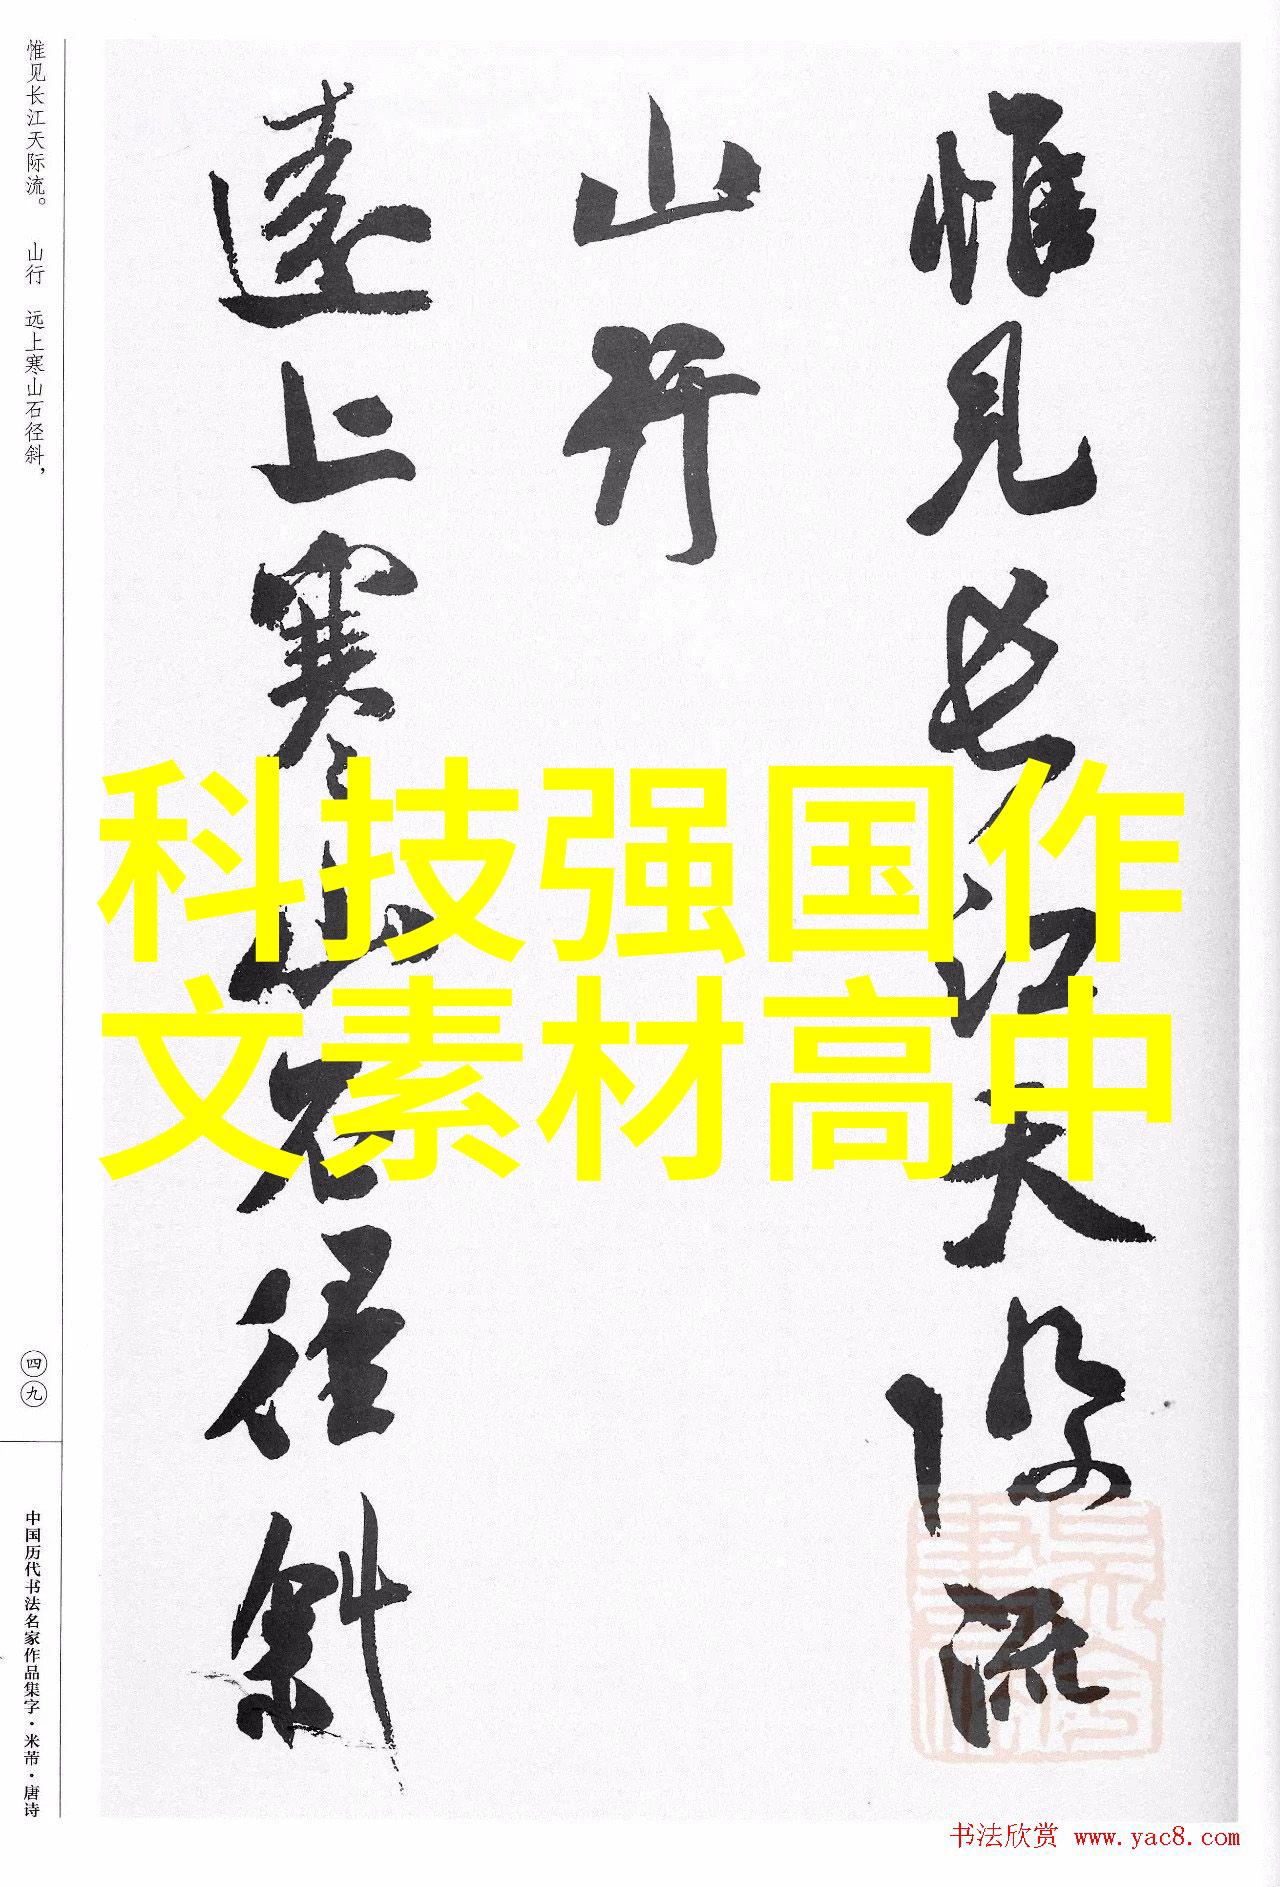 惟见长江天际流。 山行 远上寒山石径斜，
惟見长江天际流
山行
遠上寒山石径斜
科技强国作
文素材高中
四九
中国历代书法名家作品集字·米芾·唐诗
书法欣赏 www.yac8.com